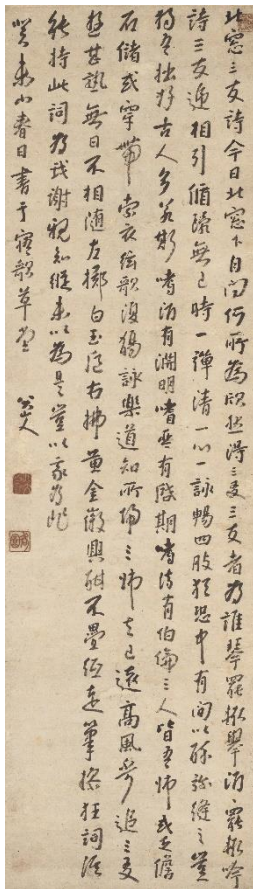 北窓三友詩今日北窓下自問何所為欣然得三友三友者為誰琴罷輒舉酒酒罷輒吟
詩三友遞相引循環無已時一彈清一心一詠暢四肢猶恐中有間以酔弥縫之豈
獨吾拙好古人多若斯嗜酒有淵明嗜琴有啟期嗜詩有伯倫三人皆吾師或乏儋
石儲或穿帶索衣絃歌復觴詠樂道知所歸三師去已遠高風追三友
遊甚熟無日不相隨左擲白玉卮右拂黃金徽興酣不疊紙走筆操狂詞誰
能持此詞為我謝親知縱未以為是豈以我為非
癸未小春日書于寤歌草堂
八大山人